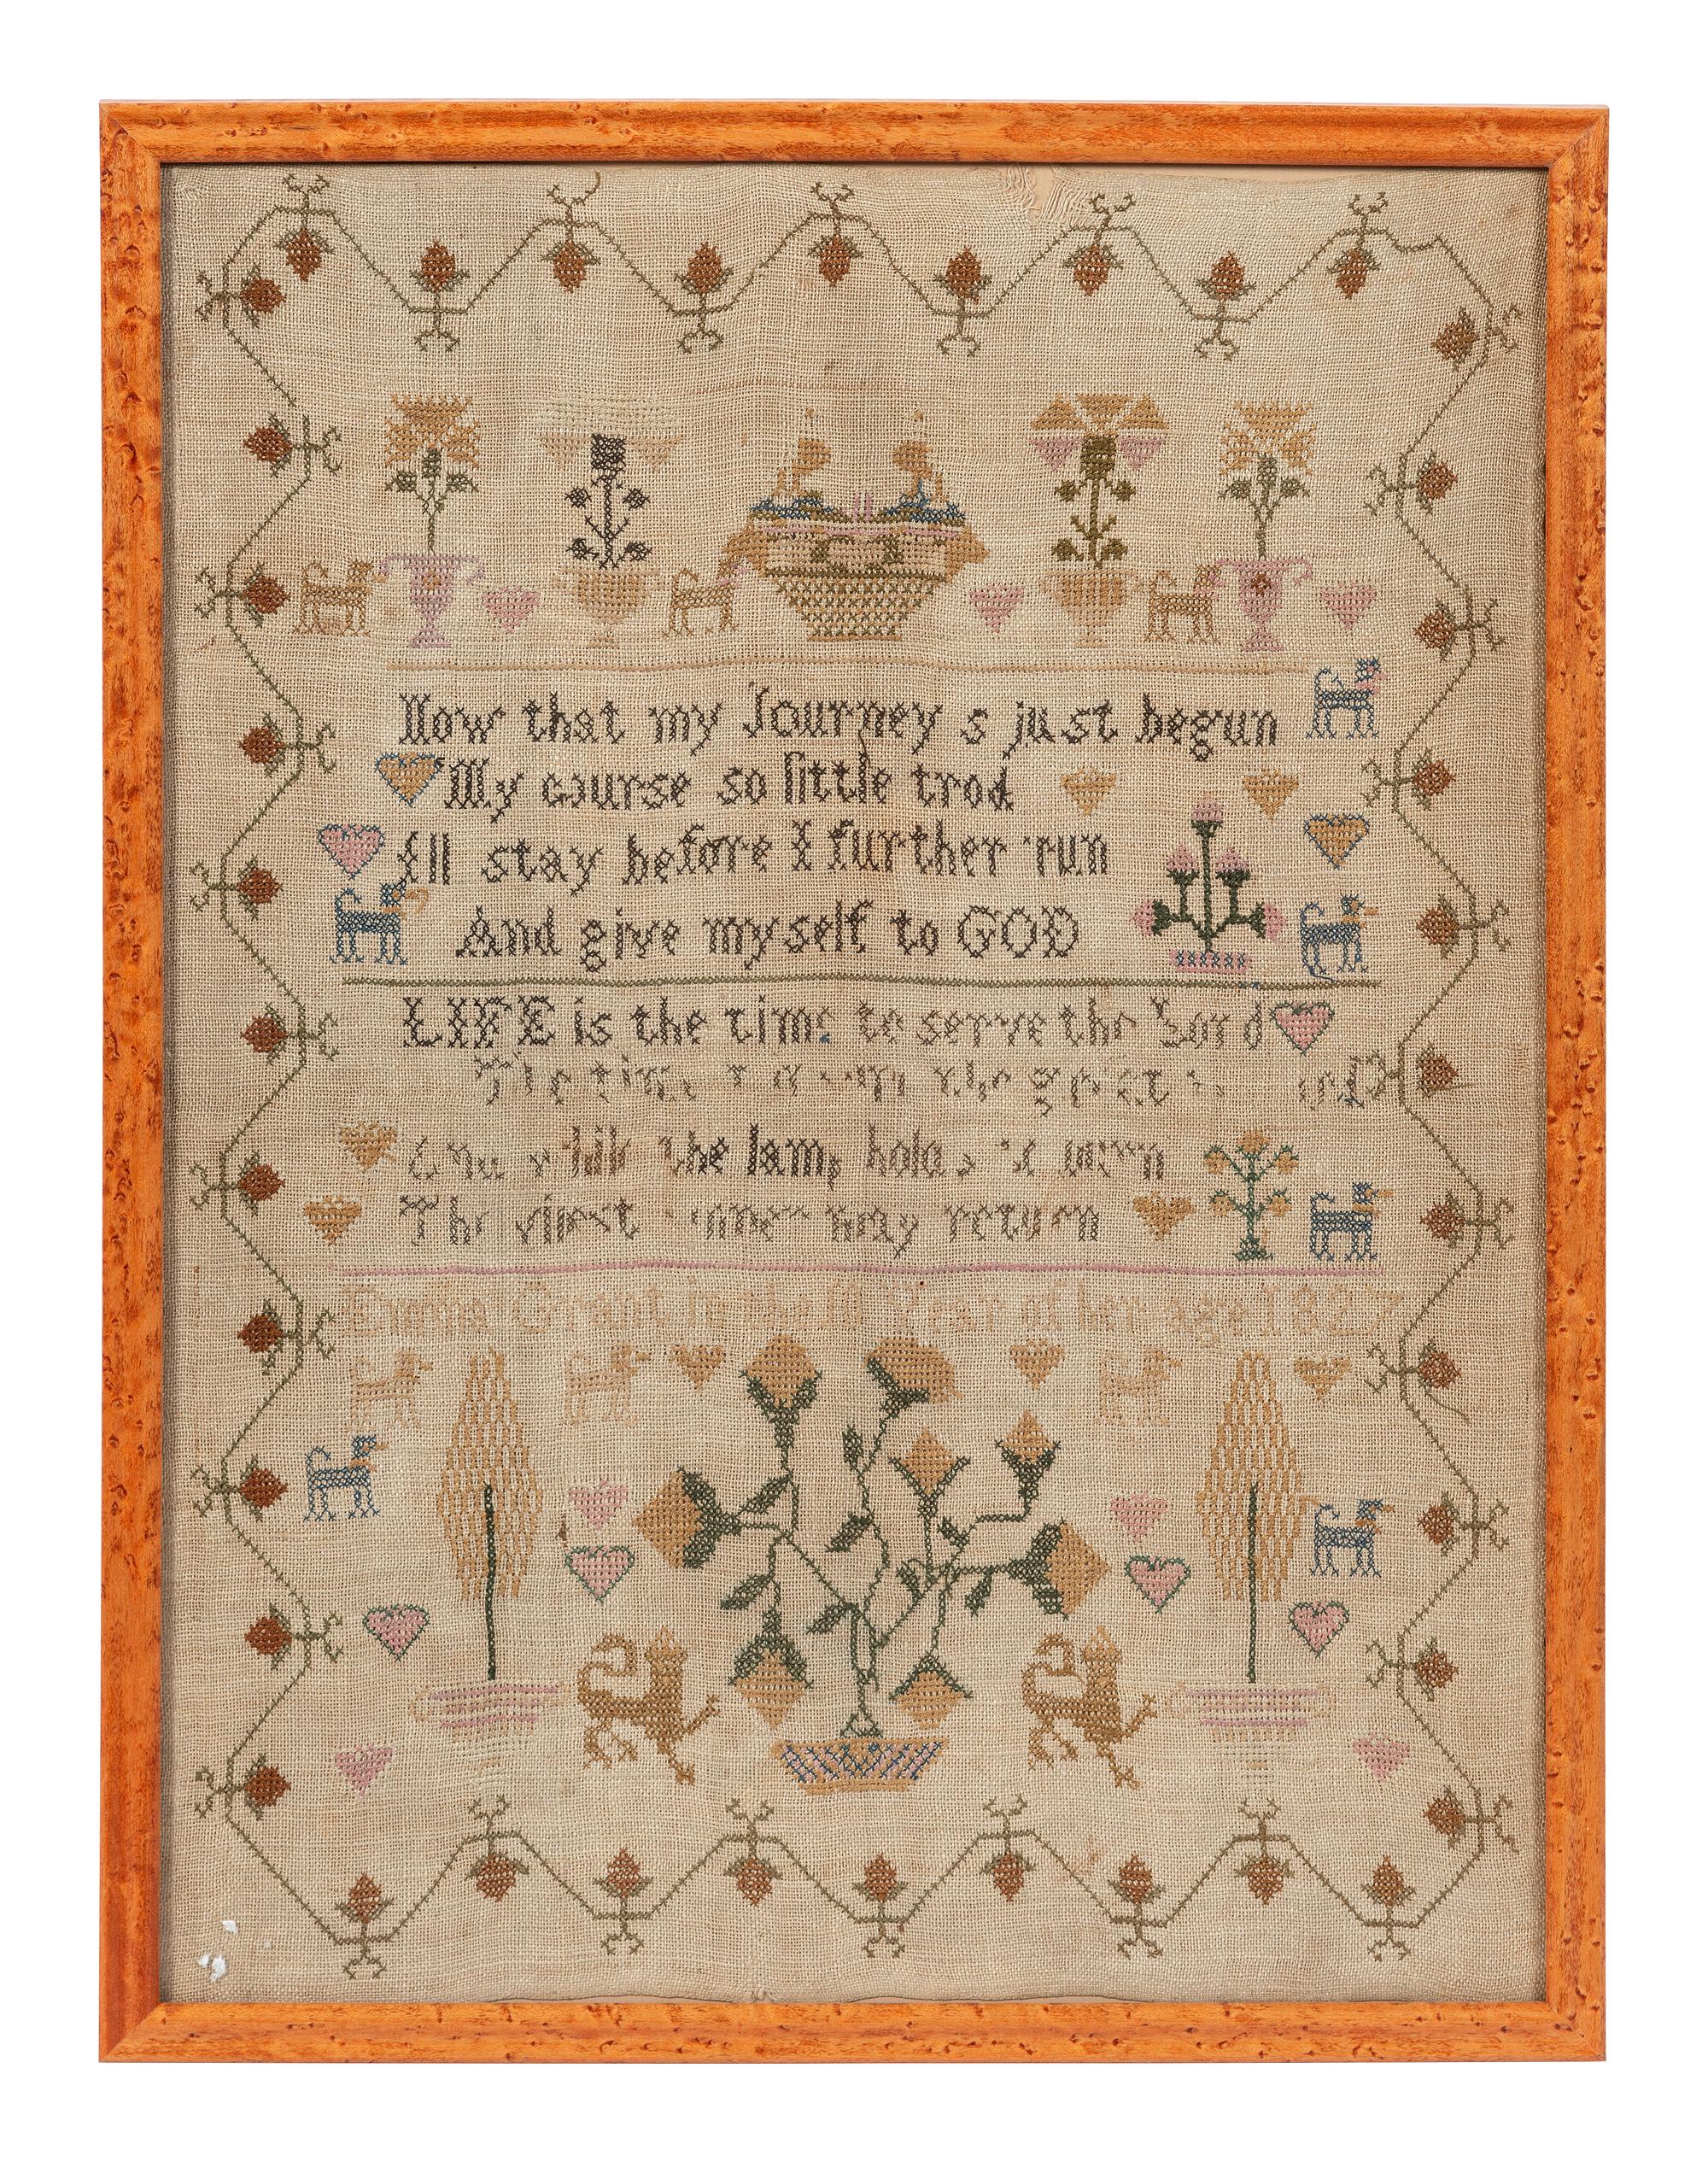 Now that my Journey s just begun
My course so little trod
I'll stay before I further run
And give myself to GOD
LIFE is the time to serve the Lord
The time
while the lamp holds
The vilest may return
Emma Grant in the Year of her age 1827